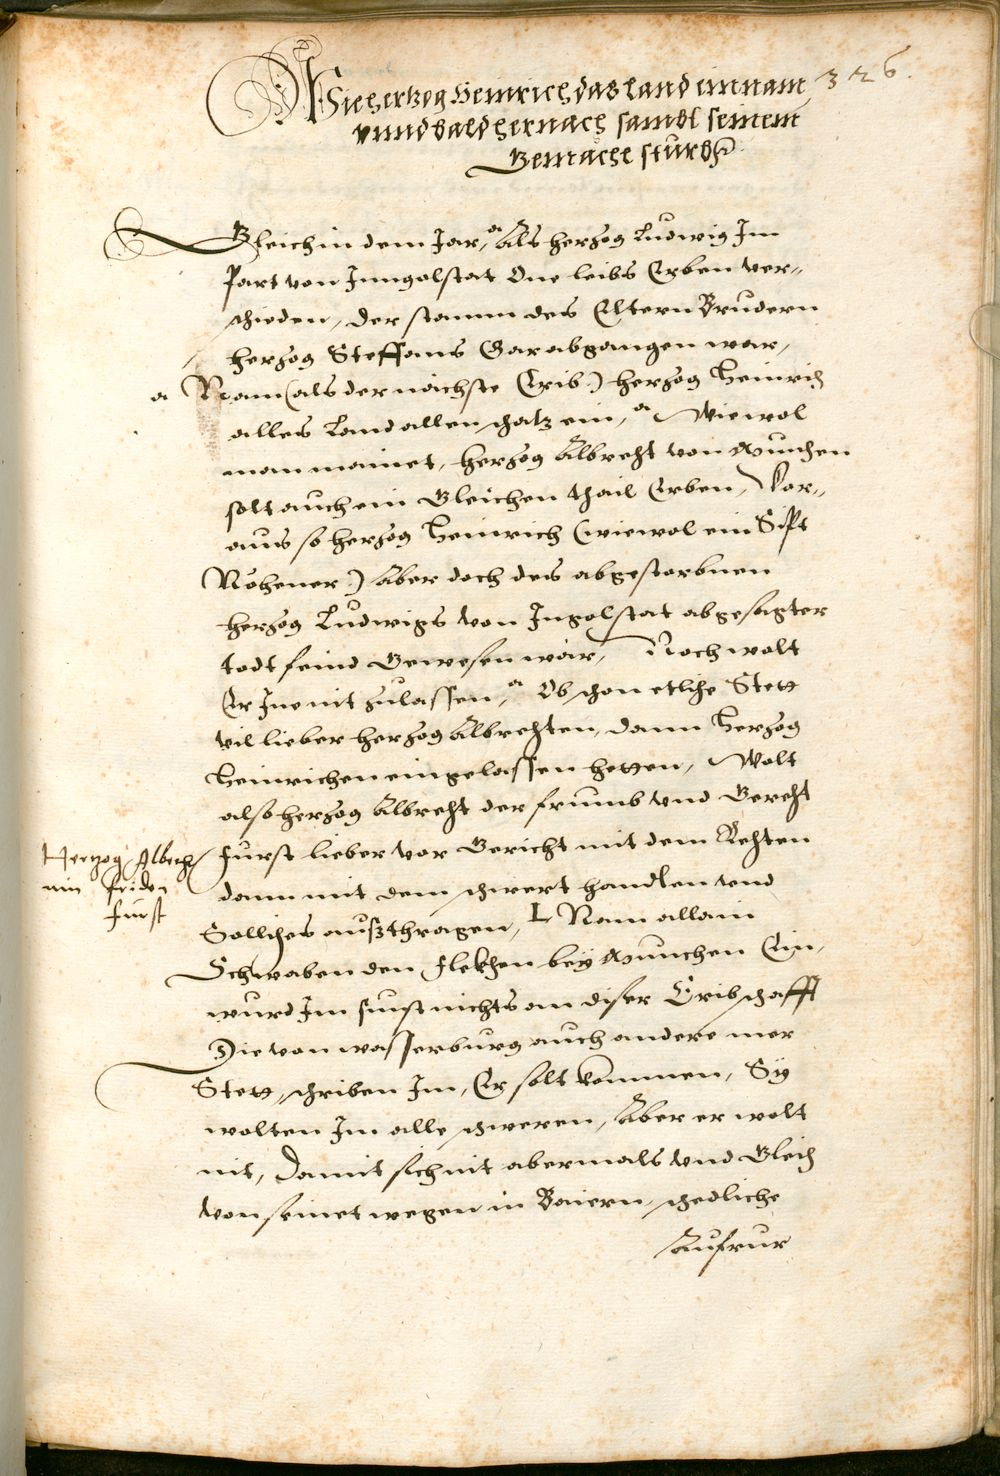 326.
Wie hertzog Heinrich das land einnam
vnnd bald hernach sambt seinem
Gemachel sturbe
Gleich in dem Jar, als hertzog Ludwig Im
Part von Inngolstat One leibs Erben ver-
schieden, der stamm des Eltern Brudern
hertzog Steffans Gar abgangen war,
a Nam (als der nächste Erib) hertzog Heinrich
alles Land allen schatz ein, a Wiewol
man mainet, hertzog Albrecht von Munchen
solt auch ein Gleichen thail Erben, Vor-
aus so hertzog Heinrich (wiewol ein Sipt
Nöhener) Aber doch des abgestorbnen
hertzog Ludwigs von Ingolstat abgesagter
todt feind Gewesen wär, Noch wolt
Er Ine nit zulassen, a Ob schon etliche Stett
vil lieber hertzog Albrechten, dann Hertzog
Heinrichen eingelassen hetten, Wolt
also hertzog Albrecht der frumb vnd Gerecht
Hertzog Albrecht
ain friden
furst
furst lieber vor Gericht mit dem Rechten
dann mit dem schwert handlen vnd
Solliches außthragen, L Nam allain
Schwaben den flekhen bey Munchen Ein,
wurd Im sunst nichts an diser Eribschafft
Die von wasserburg auch andere mer
Stett, schriben Im, Er solt kommen, Sy
wolten Im alle schweren, Aber er wolt
nit, damit sich nit abermals vnd Gleich
von seinet wegen in Baiern schedliche
Aufrur